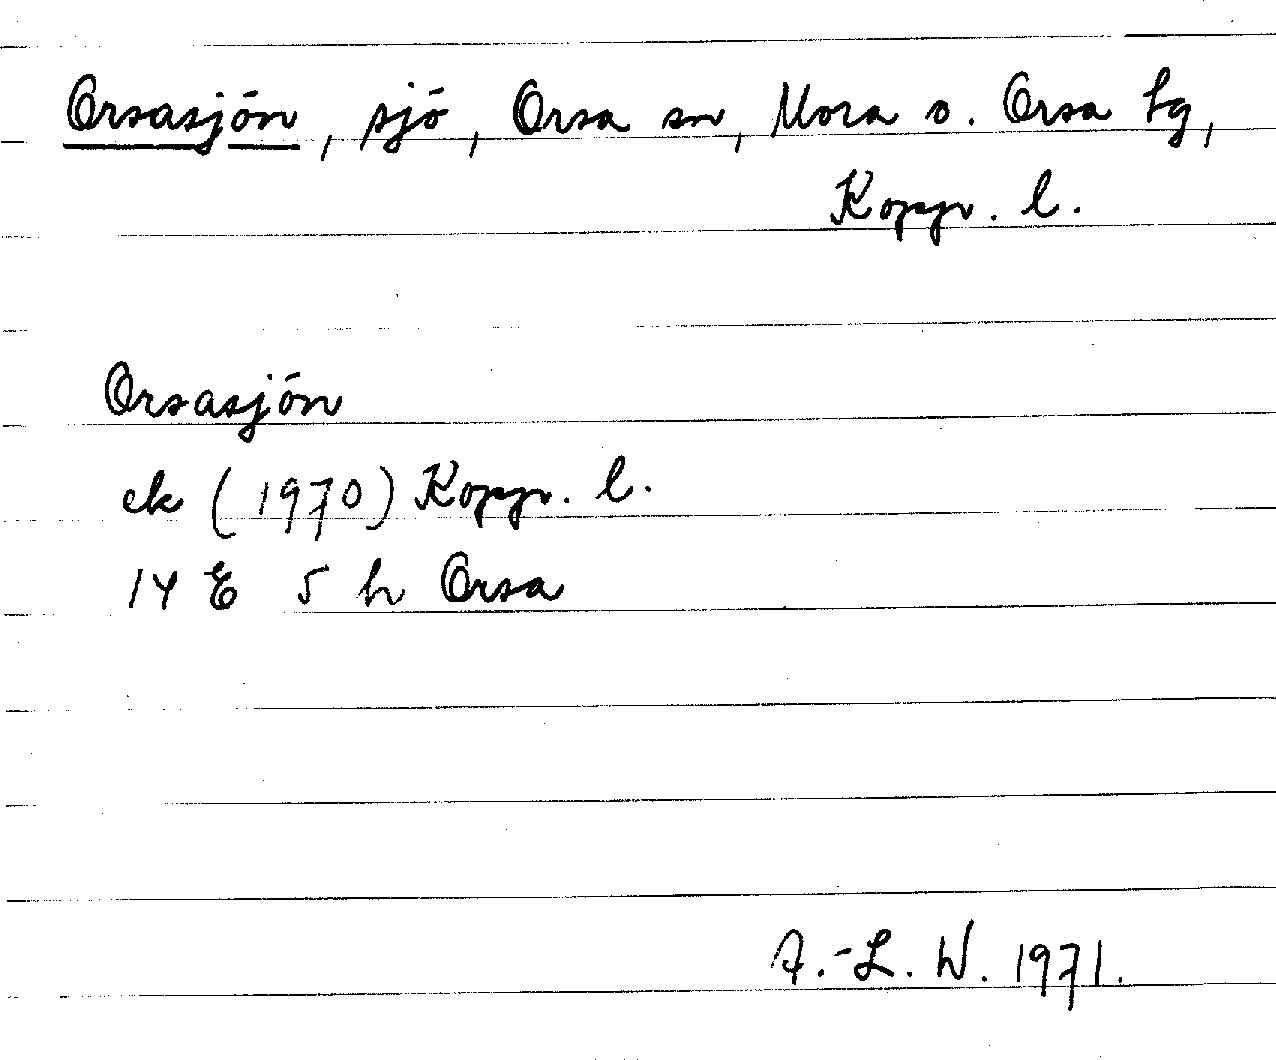 Orsasjön, sjö, Orsa sn, Mora o. Orsa tg,
Koppr. l.
Orsasjön
ek (1970) Koppr. l.
14 E 5 h Orsa
A.-L. W. 1971.